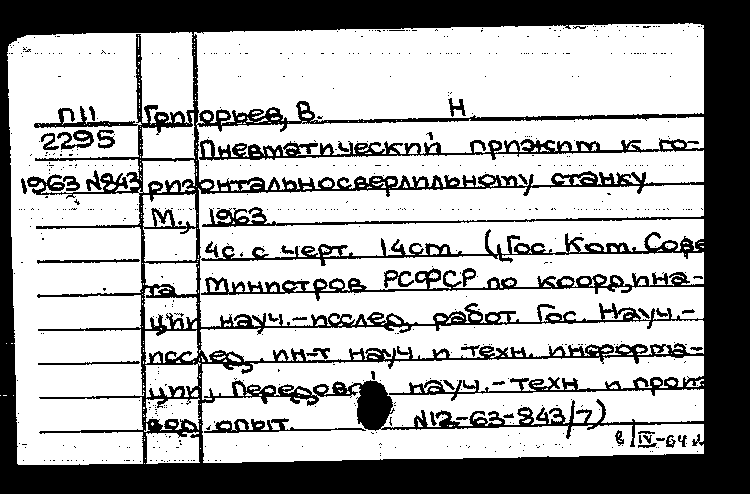 П11 Григорьев, В. Н.
2295 Пневматический прижим к го-
1963 №843 ризонтальносверлильному станку
М., 1963.
4с. с черт. 14ст. (Гос. Ком. Сове
та Министров РСФСР по координа-
ции науч.-исслед. работ. Гос. Науч.-
исслед. ин-т науч. и техн. информа-
ции. Передовой науч.-техн. и произ
вод. опыт. №12-63-843/7)
8/IV-64